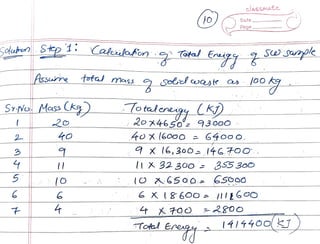 classmate
Date
Page
10
Solution Step 1: Calculation of Total Energy of SW sample
Assume total mass of solid waste as 100 kg.
Sr.No. Mass (kg) Total energy (KJ)
1 20 20×4650 = 93000
2 40 40×16000 = 64000.
3 9 9 × 16,300 = 146700
4 11 11 × 32300 = 355300
5 10 10 × 6500 = 65000
6 6 6 × 18600 = 111600
7 4 4 × 700 = 2800
Total Energy = 1414400 (KJ)